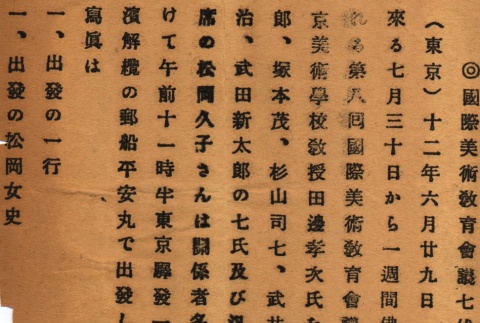 ◎國際美術敎育會議七
(東京)十二年六月廿九日
來る七月三十日から一週間佛
る第八囘國際美術敎育會議
京美術學校敎授田邊孝次氏
郎、塚本茂、杉山司七、武井
治、武田新太郎の七氏及び
席の松岡久子さんは關係者多
けて午前十一時半東京驛發
濱解纜の郵船平安丸で出發し
寫眞は
一、出發の一行
一、出發の松岡女史